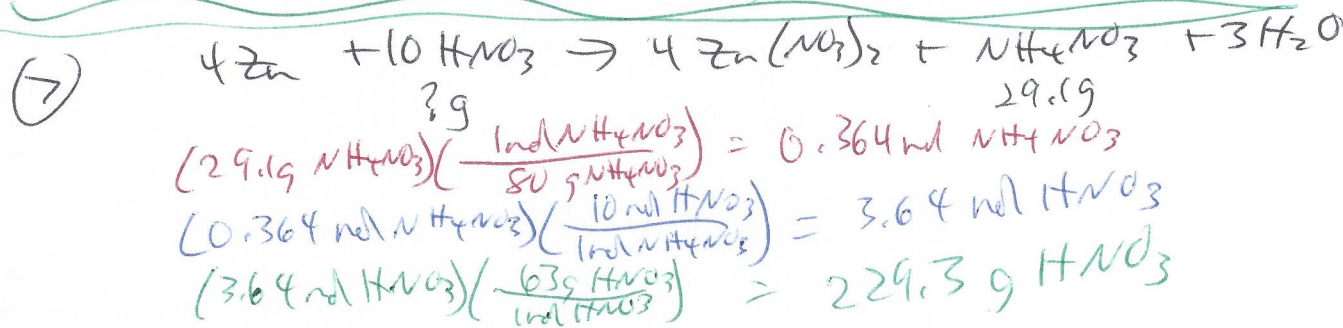 7 4 Zn + 10 HNO3 → 4 Zn(NO3)2 + NH4NO3 + 3 H2O
? g 29.1g
(29.1g NH4NO3)(1mol NH4NO3 / 80 g NH4NO3) = 0.364 mol NH4NO3
(0.364 mol NH4NO3)(10 mol HNO3 / 1mol NH4NO3) = 3.64 mol HNO3
(3.64 mol HNO3)(63g HNO3 / 1mol HNO3) = 229.3 g HNO3